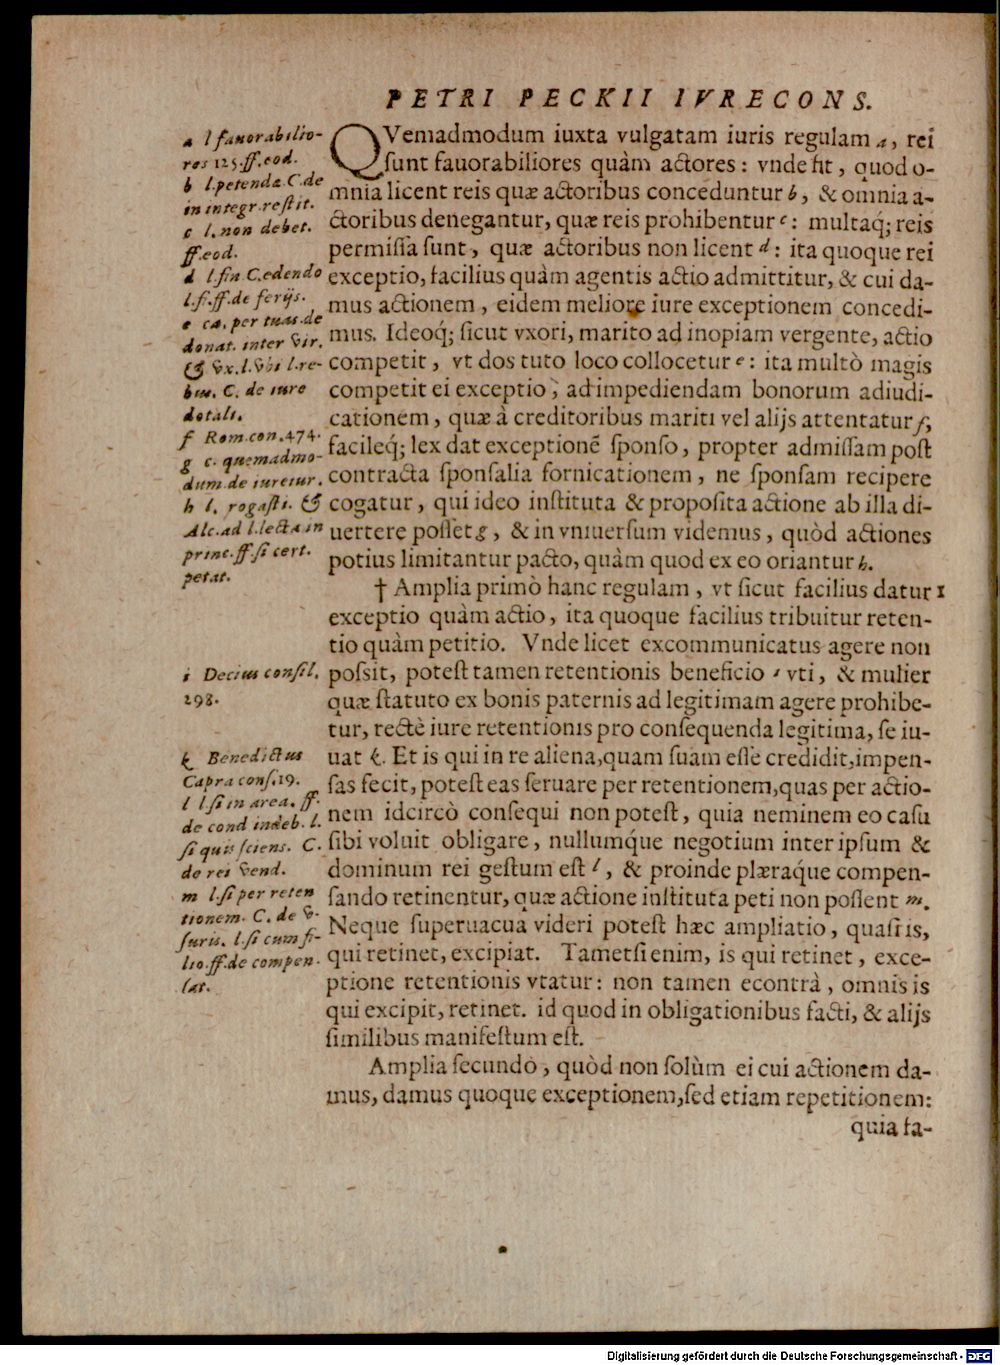 PETRI PECKII IVRECONS.
QVemadmodum iuxta vulgatam iuris regulam a, rei
ſunt fauorabiliores quàm actores: vnde fit, quod o-
mnia licent reis quæ actoribus conceduntur b, & omnia a-
ctoribus denegantur, quæ reis prohibentur c: multaq́; reis
permiſſa ſunt, quæ actoribus non licent d: ita quoque rei
exceptio, facilius quàm agentis actio admittitur, & cui da-
mus actionem, eidem meliore iure exceptionem concedi-
mus. Ideoq́; ſicut vxori, marito ad inopiam vergente, actio
competit, vt dos tuto loco collocetur e: ita multò magis
competit ei exceptio, ad impediendam bonorum adiudi-
cationem, quæ à creditoribus mariti vel alijs attentatur f,
facileq́; lex dat exceptionē ſponſo, propter admiſſam poſt
contracta ſponſalia fornicationem, ne ſponſam recipere
cogatur, qui ideo inſtituta & propoſita actione ab illa di-
uertere poſſet g, & in vniuerſum videmus, quòd actiones
potius limitantur pacto, quàm quod ex eo oriantur h.
† Amplia primò hanc regulam, vt ſicut facilius datur 1
exceptio quàm actio, ita quoque facilius tribuitur reten-
tio quàm petitio. Vnde licet excommunicatus agere non
poſſit, poteſt tamen retentionis beneficio i vti, & mulier
quæ ſtatuto ex bonis paternis ad legitimam agere prohibe-
tur, rectè iure retentionis pro conſequenda legitima, ſe iu-
uat k. Et is qui in re aliena, quam ſuam eſſe credidit, impen-
ſas fecit, poteſt eas ſeruare per retentionem, quas per actio-
nem idcircò conſequi non poteſt, quia neminem eo caſu
ſibi voluit obligare, nullumq́ue negotium inter ipſum &
dominum rei geſtum eſt l, & proinde plæraq́ue compen-
ſando retinentur, quæ actione inſtituta peti non poſſent m.
Neque ſuperuacua videri poteſt hæc ampliatio, quaſi is,
qui retinet, excipiat. Tametſi enim, is qui retinet, exce-
ptione retentionis vtatur: non tamen econtrà, omnis is
qui excipit, retinet. id quod in obligationibus facti, & alijs
ſimilibus manifeſtum eſt.
Amplia ſecundò, quòd non ſolùm ei cui actionem da-
mus, damus quoque exceptionem, ſed etiam repetitionem:
quia fa-
a l fauorabilio-
res 125. ff. eod.
b l. petendæ C. de
in integr. reſtit.
c l. non debet.
ff. eod.
d l. fin C. edendo
l. fi. ff. de ferijs.
e ca. per tuas de
donat. inter vir.
& vx. l. vbi l. re-
bus. C. de iure
dotali.
f Rom. con. 474.
g c. quemadmo-
dum de iureiur.
h l. rogaſti. &
Alc. ad l. lecta in
princ. ff. ſi cert.
petat.
i Decius conſil.
298.
k Benedictus
Capra conſ. 19.
l l. ſi in area. ff.
de cond indeb. l.
ſi quis ſciens. C.
de rei vend.
m l. ſi per reten
tionem. C. de v-
ſuris. l. ſi cum fi-
lio. ff. de compen-
ſat.
Digitalisierung gefördert durch die Deutsche Forschungsgemeinschaft - DFG